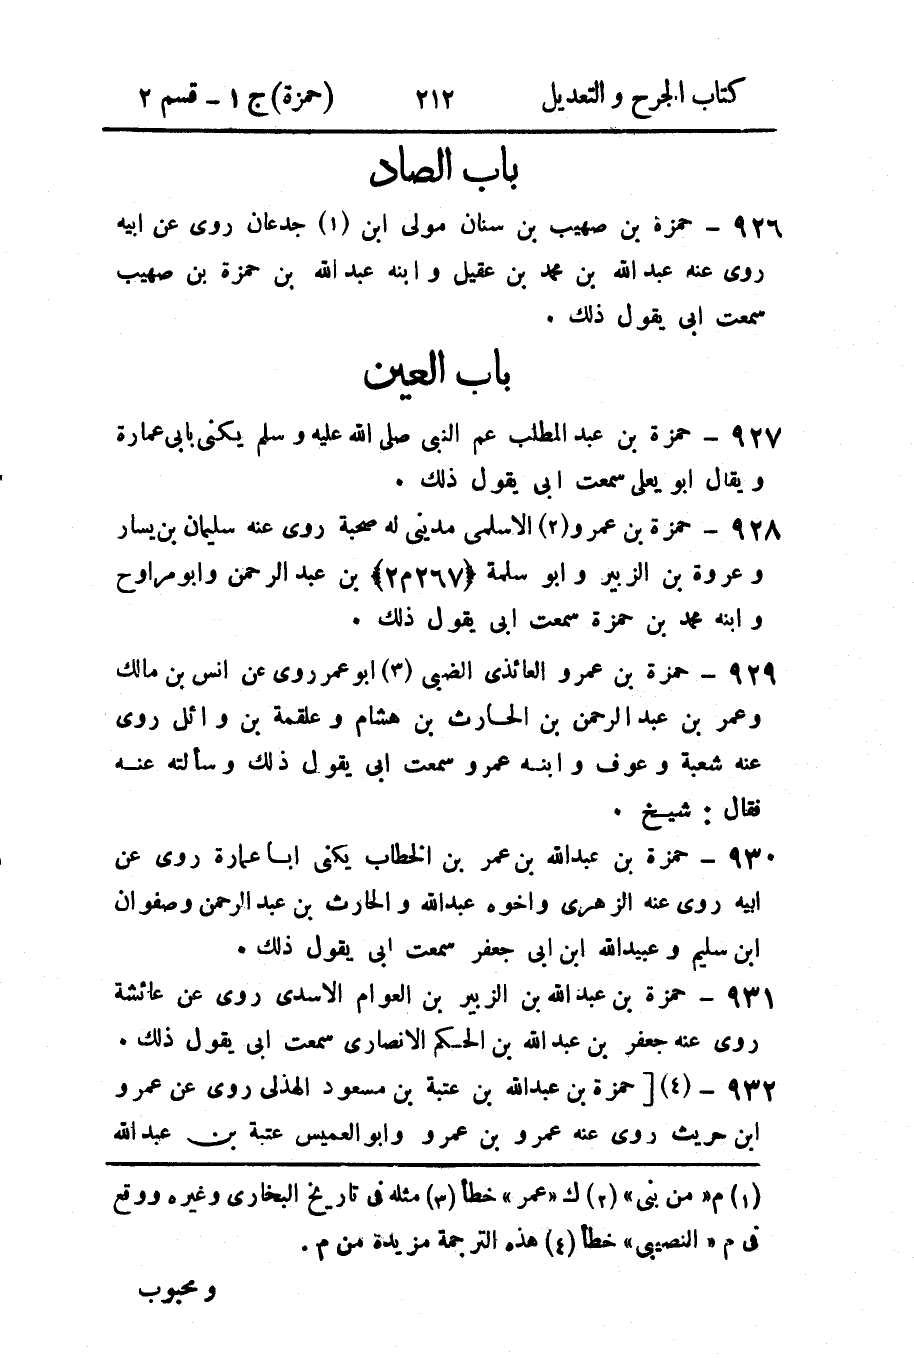 كتاب الجرح والتعديل ٢١٢ (حمزة) ج ١ - قسم ٢
باب الصاد
٩٢٦ - حمزة بن صهيب بن سنان مولى ابن (١) جدعان روى عن ابيه
روى عنه عبد الله بن محمد بن عقيل و ابنه عبد الله بن حمزة بن صهيب
سمعت ابى يقول ذلك .
باب العين
٩٢٧ - حمزة بن عبد المطلب عم النبى صلى الله عليه و سلم يكنى بابى عمارة
و يقال ابو يعلى سمعت ابى يقول ذلك .
٩٢٨ - حمزة بن عمرو (٢) الاسلمى مدينى له صحبة روى عنه سليمان بن يسار
و عروة بن الزبير و ابو سلمة ﴿٢٦٧م٢﴾ بن عبد الرحمن وابو مراوح
و ابنه محمد بن حمزة سمعت ابى يقول ذلك .
٩٢٩ - حمزة بن عمرو العائذى الضبى (٣) ابو عمر روى عن انس بن مالك
وعمر بن عبد الرحمن بن الحارث بن هشام و علقمة بن وائل روى
عنه شعبة و عوف و ابنه عمرو سمعت ابى يقول ذلك و سألته عنه
فقال : شيخ .
٩٣٠ - حمزة بن عبد الله بن عمر بن الخطاب يكنى ابا عمارة روى عن
ابيه روى عنه الزهرى واخوه عبدالله و الحارث بن عبد الرحمن وصفوان
ابن سليم و عبيدالله ابن ابى جعفر سمعت ابى يقول ذلك .
٩٣١ - حمزة بن عبد الله بن الزبير بن العوام الاسدى روى عن عائشة
روى عنه جعفر بن عبد الله بن الحكم الانصارى سمعت ابى يقول ذلك .
٩٣٢ - (٤) [ حمزة بن عبدالله بن عتبة بن مسعود الهذلى روى عن عمرو
ابن حريث روى عنه عمرو بن عمرو وابو العميس عتبة بن عبد الله
(١) م « من بنى » (٢) ك « عمر » خطأ (٣) مثله فى تاريخ البخارى وغيره ووقع
فى م « النصيبى » خطأ (٤) هذه الترجمة مزيدة من م .
و محبوب